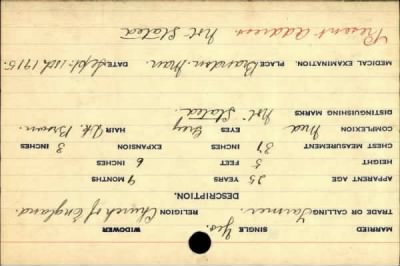 MARRIED SINGLE Yes. WIDOWER
TRADE OR CALLING Farmer. RELIGION Church of England.
DESCRIPTION.
APPARENT AGE 25 YEARS 9 MONTHS
HEIGHT 5 FEET 6 INCHES
CHEST MEASUREMENT 37 INCHES EXPANSION 3 INCHES
COMPLEXION Med EYES Grey HAIR Dk Brown.
DISTINGUISHING MARKS Not Stated.
MEDICAL EXAMINATION. PLACE Brandon. Man. DATE Sept. 18th 1915.
Present Address. Not Stated